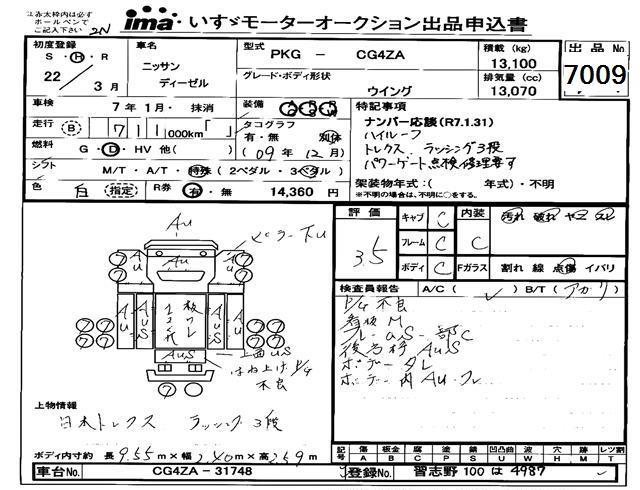 注)赤太枠内は必ず
ボールペンで
ご記入下さい
2N
ima いすゞモーターオークション出品申込書
初度登録
S ・ H ・ R
22 / 3 月
車名
ニッサン
ディーゼル
型式
PKG - CG4ZA
グレード・ボディ形状
ウイング
積載 (kg)
13,100
排気量 (cc)
13,070
出品No
7009
車検
7 年 1 月・ 抹消
装備
走行 (B) 711,000km「 」
タコグラフ
有・無 別体
(09 年 12 月)
燃料 G・D・HV 他( )
シフト M/T ・ A/T ・ 特殊 ( 2ペダル ・ 3ペダル )
色 白 (指定) R券 有・無 14,360 円
特記事項
ナンバー応談(R7.1.31)
ハイルーフ
トレクス ラッシング3段
パワーゲート点検修理要す
架装物年式:( 年式)・不明
(※不明の場合は、不明に○をする。)
評価
3.5
キャブ C
フレーム C
ボディ C
内装 C
汚れ 破れ ヤニ スレ
Fガラス 割れ 線 点傷 イバリ
検査員報告 A/C ( ✓ ) B/T ( アカリ )
P/G 不良
看板 M
後方枠 AuS
ボデー 内 Au
Au
AuS
上面 uS
はね上げ P/G
不良
上物情報
日本トレクス ラッシング 3段
ボディ内寸約 長 9.55 m×幅 2.40 m×高 2.59 m
記号 傷 板金 腐 塗 錆 凹凸曲 波 穴 跡 レツ割
A B C P S U W H M T
車台No. CG4ZA-31748
登録No. 習志野 100 は 4987